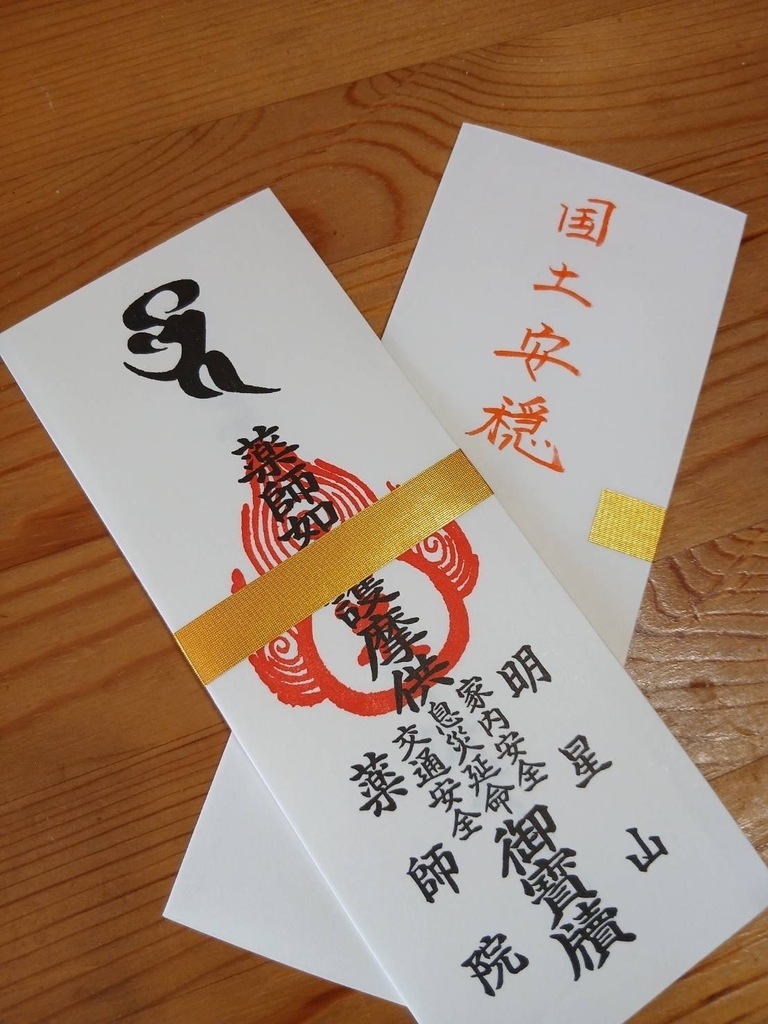 薬師如
護摩供
家内安全
息災延命
交通安全
御寳牘
明星山
薬師院
国土安穏